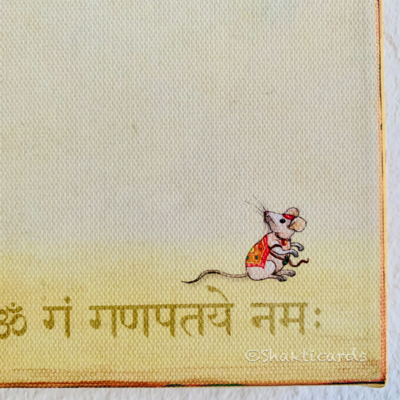 ॐ गं गणपतये नमः
©Shakticards